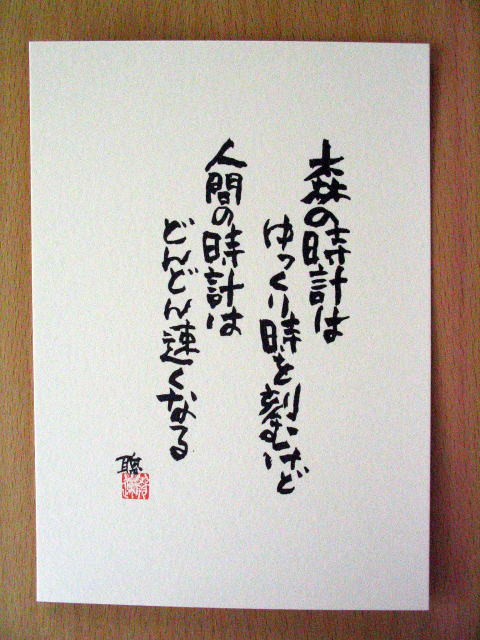 森の時計は
ゆっくり時を刻むけど
人間の時計は
どんどん速くなる
聰